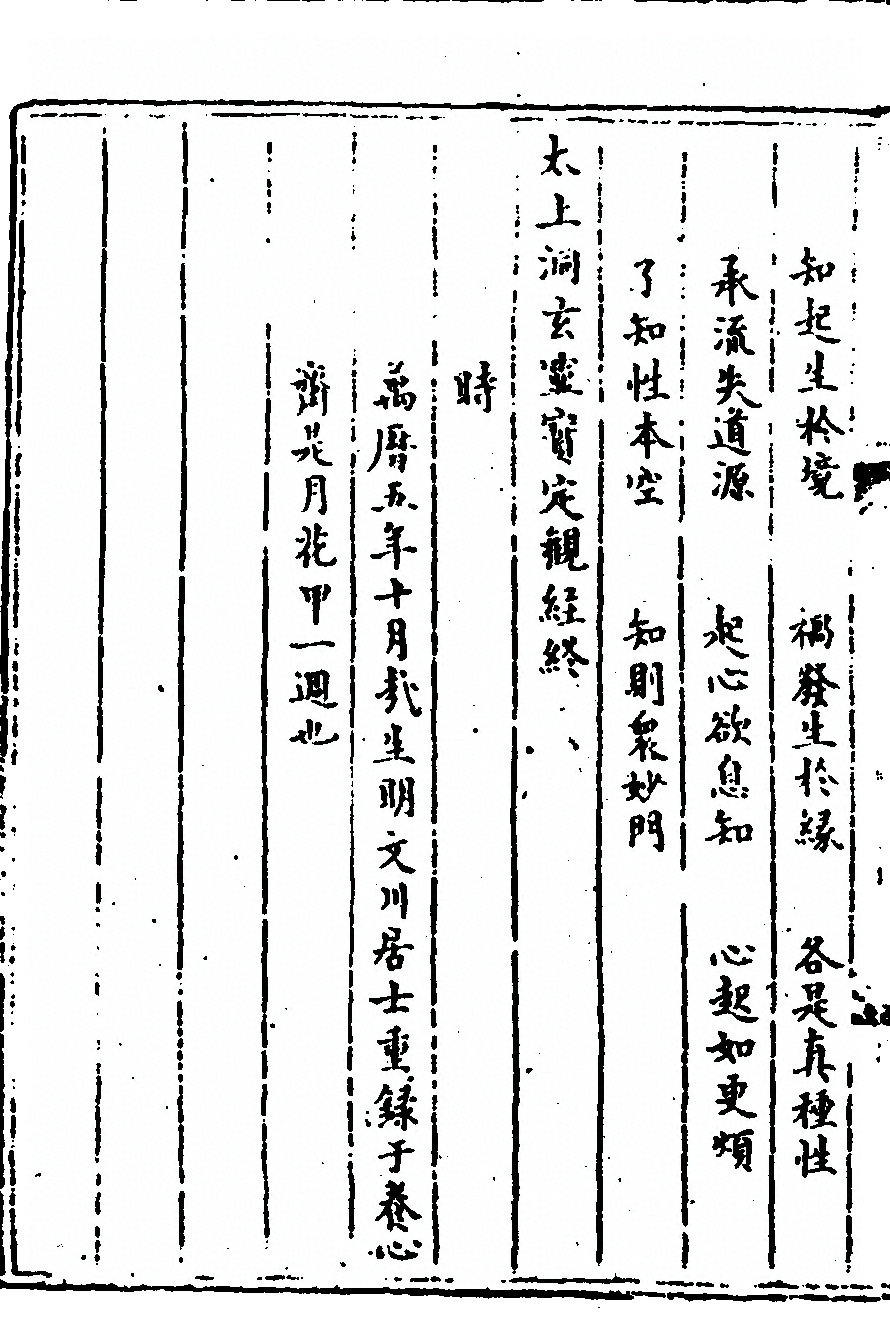 知起生扵境　禍發生扵縁　各是真種性
承流失道源　起心欲息知　心起如更煩
了知性本空　知則衆妙門
太上洞玄靈寳定觀経終
時
萬曆五年十月哉生明文川居士重録于養心
齋是月花甲一週也